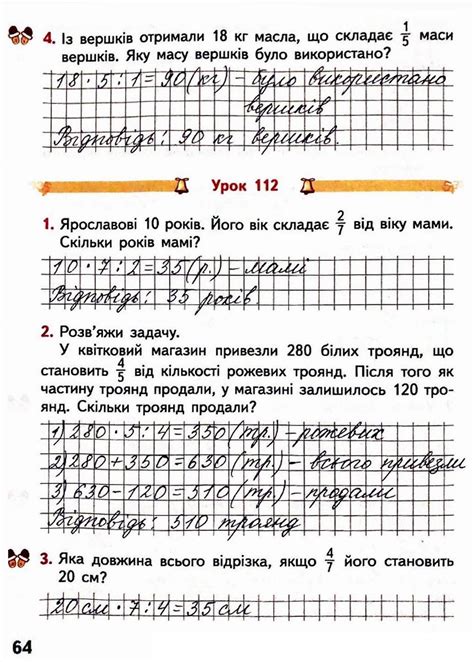 4. Із вершків отримали 18 кг масла, що складає 1/5 маси
вершків. Яку масу вершків було використано?
18 · 5 : 1 = 90 (кг) – було використано
вершків
Відповідь: 90 кг вершків.
Урок 112
1. Ярославові 10 років. Його вік складає 2/7 від віку мами.
Скільки років мамі?
10 · 7 : 2 = 35 (р.) – мамі
Відповідь: 35 років.
2. Розв'яжи задачу.
У квітковий магазин привезли 280 білих троянд, що
становить 4/5 від кількості рожевих троянд. Після того як
частину троянд продали, у магазині залишилось 120 тро-
янд. Скільки троянд продали?
1) 280 · 5 : 4 = 350 (тр.) – рожевих
2) 280 + 350 = 630 (тр.) – всього привезли
3) 630 – 120 = 510 (тр.) – продали
Відповідь: 510 троянд
3. Яка довжина всього відрізка, якщо 4/7 його становить
20 см?
20 см · 7 : 4 = 35 см
64